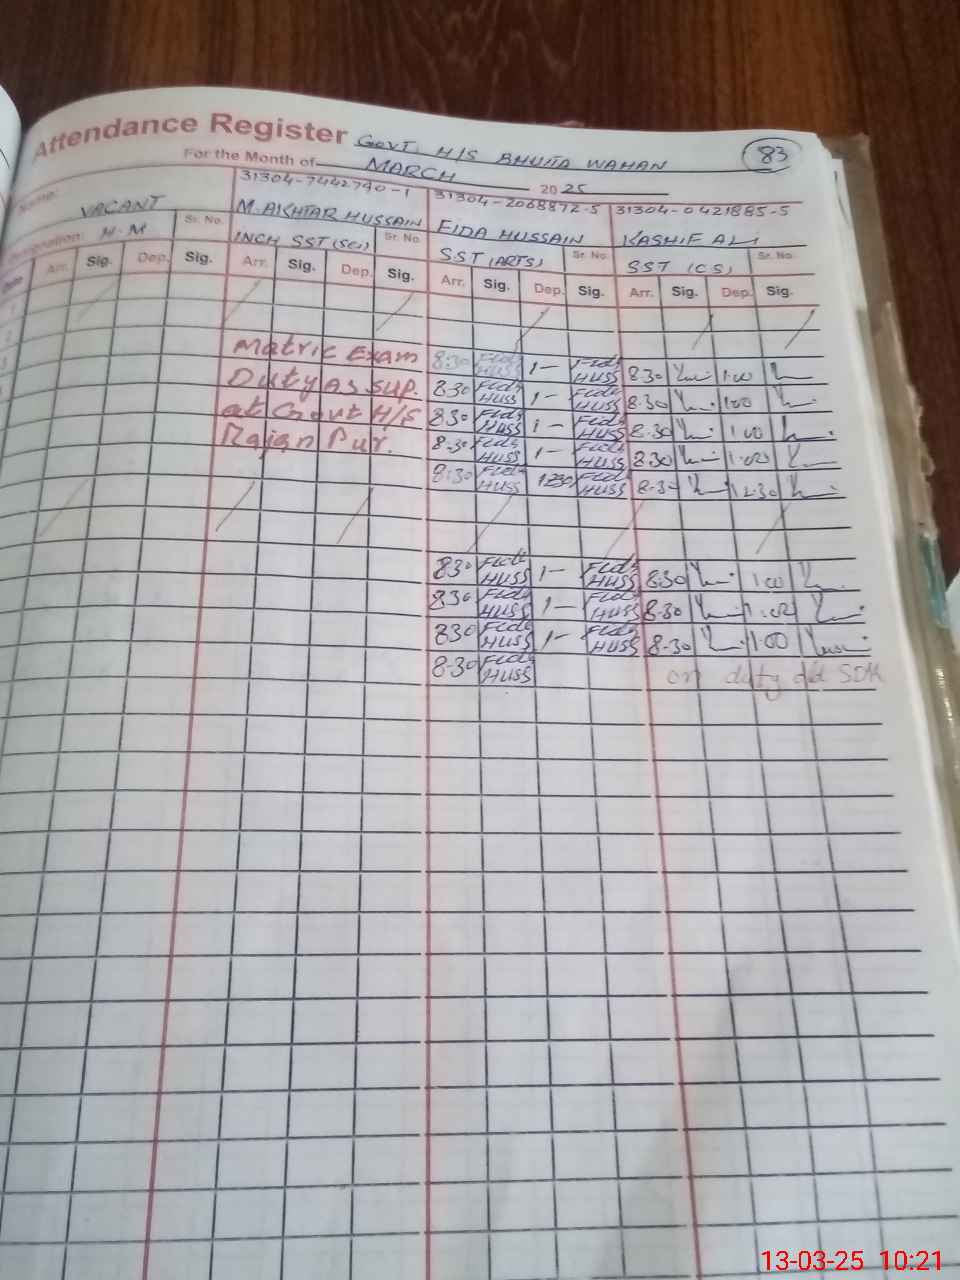 Attendance Register GOVT. H/S BHUTTA WAHAN 83
For the Month of MARCH 2025
31304-7442740-1 31304-2068872-5 31304-0421885-5
Name: VACANT M. AKHTAR HUSSAIN FIDA HUSSAIN KASHIF ALI
Designation: H.M Sr. No. INCH SST (SCI) Sr. No. SST (ARTS) Sr. No. SST (CS) Sr. No.
Date Arr. Sig. Dep. Sig. Arr. Sig. Dep. Sig. Arr. Sig. Dep. Sig. Arr. Sig. Dep. Sig.
1
2
3 Matric Exam 8:30 Fida HUSS 1- Fida HUSS 8.30 1.00
Duty as sup. 8.30 Fida HUSS 1- Fida HUSS 8.30 1.00
at Govt H/S 8.30 Fida HUSS 1- Fida HUSS 8.30 1.00
Rajan Pur. 8.30 Fida HUSS 1- Fida HUSS 8.30 1.00
8:30 Fida HUSS 12:30 Fida HUSS 8.30 12.30
8.30 Fida HUSS 1- Fida HUSS 8.30 1.00
8.30 Fida HUSS 1- Fida HUSS 8.30 1.00
8.30 Fida HUSS 1- Fida HUSS 8.30 1.00
8-30 Fida HUSS on duty
13-03-25 10:21